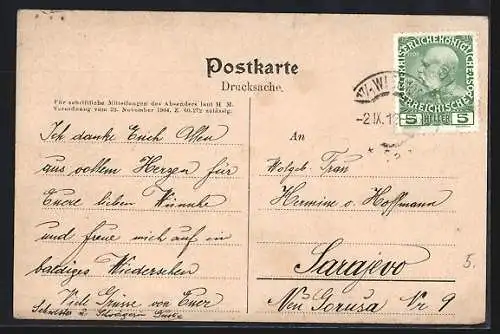 Postkarte
Drucksache.
Für schriftliche Mitteilungen des Absenders laut H. M.
Verordnung vom 23. November 1904, Z. 60.172 zulässig.
Ich danke Euch Allen
aus vollem Herzen für
Euere lieben Wünsche
und freue mich auf ein
baldiges Wiedersehen
Viele Grüsse von Euer
Schwester u. Schwägerin
An
Wolgeb. Frau
Hermine v. Hoffmann
Sarajevo
Nr 9
5.
5 HELLER 5
-2.IX.1